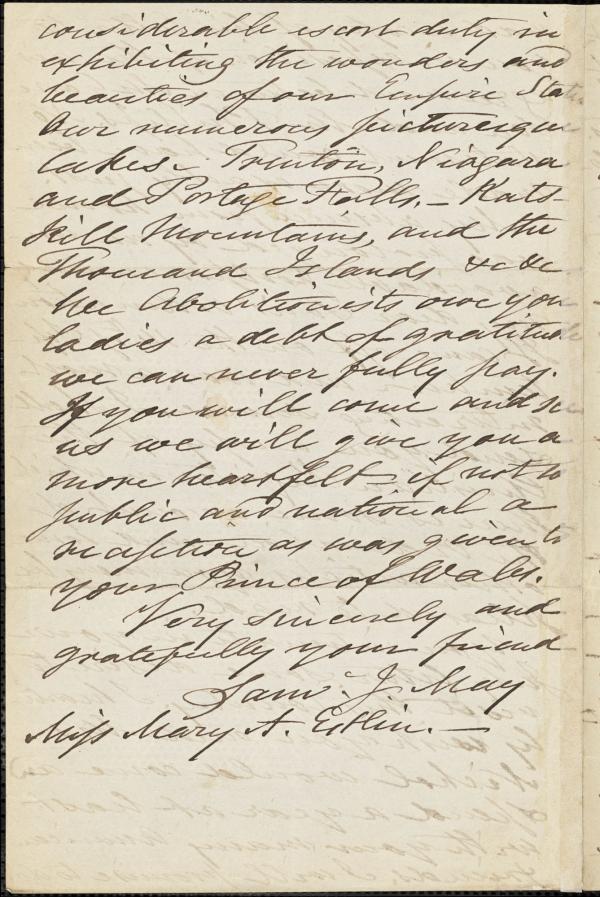 considerable escort duty in
exhibiting the wonders and
beauties of our Empire State
Our numerous picturesque
lakes - Trenton, Niagara
and Portage Falls, - Kats-
kill Mountains, and the
Thousand Islands &c &c
We Abolitionists owe you
ladies a debt of gratitude
we can never fully pay.
If you will come and see
us we will give you a
more heartfelt if not so
public and national a
reception as was given to
your Prince of Wales.
Very sincerely and
gratefully your friend
Saml. J. May
Miss Mary A. Estlin. -